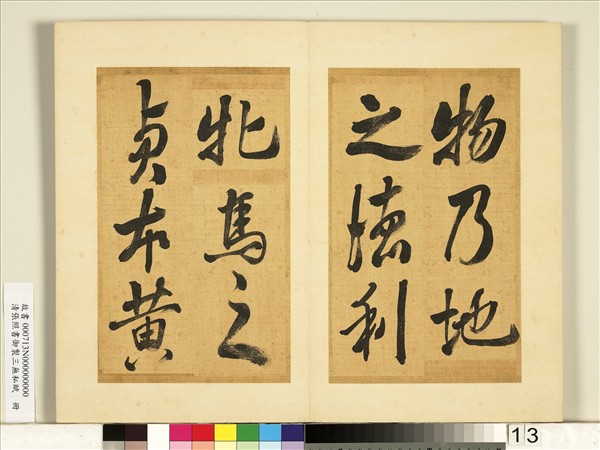 物乃地
之德利
牝馬之
貞本黄
故書 000713N000000000
清張照書御製三無私賦 冊
13